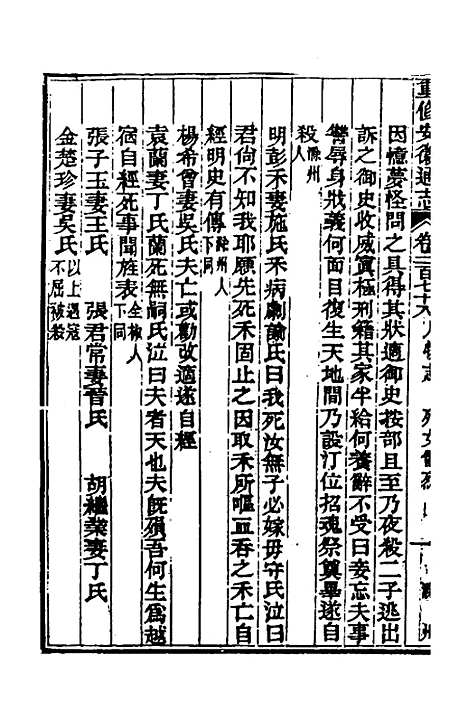 重修安徽通志 卷二百七十八 人物志 列女 節烈 一 滁州
因憶夢怪問之具得其狀適御史按部且至乃夜殺二子逃出
訴之御史收威寘極刑籍其家半給何養辭不受曰妾忘夫事
讐辱身戕義何面目復生天地間乃設汀位招魂祭奠畢遂自
殺滁州人
明彭禾妻施氏禾病劇諭氏曰我死汝無子必嫁毋守氏泣曰
君尙不知我耶願先死禾固止之因取禾所嘔血吞之禾亡自
經明史有傳滁州人下同
楊希曾妻吳氏夫亡或勸改適遂自經
袁蘭妻丁氏蘭死無嗣氏泣曰夫者天也夫旣殞吾何生爲越
宿自經死事聞旌表全椒人下同
張子玉妻王氏 張君常妻晉氏 胡繼業妻丁氏
金楚珍妻吳氏以上遇寇不屈被殺